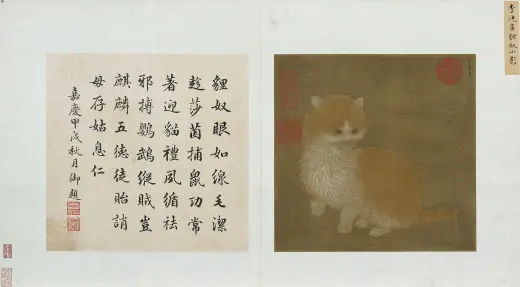 李迪畫貍奴小影
貍奴眼如線毛潔
趂莎茵捕鼠功常
著迎貓禮夙循祛
邪搏鸚鵡縱賊豈
麒麟五德徒貽誚
毋存姑息仁
嘉慶甲戌秋月御題